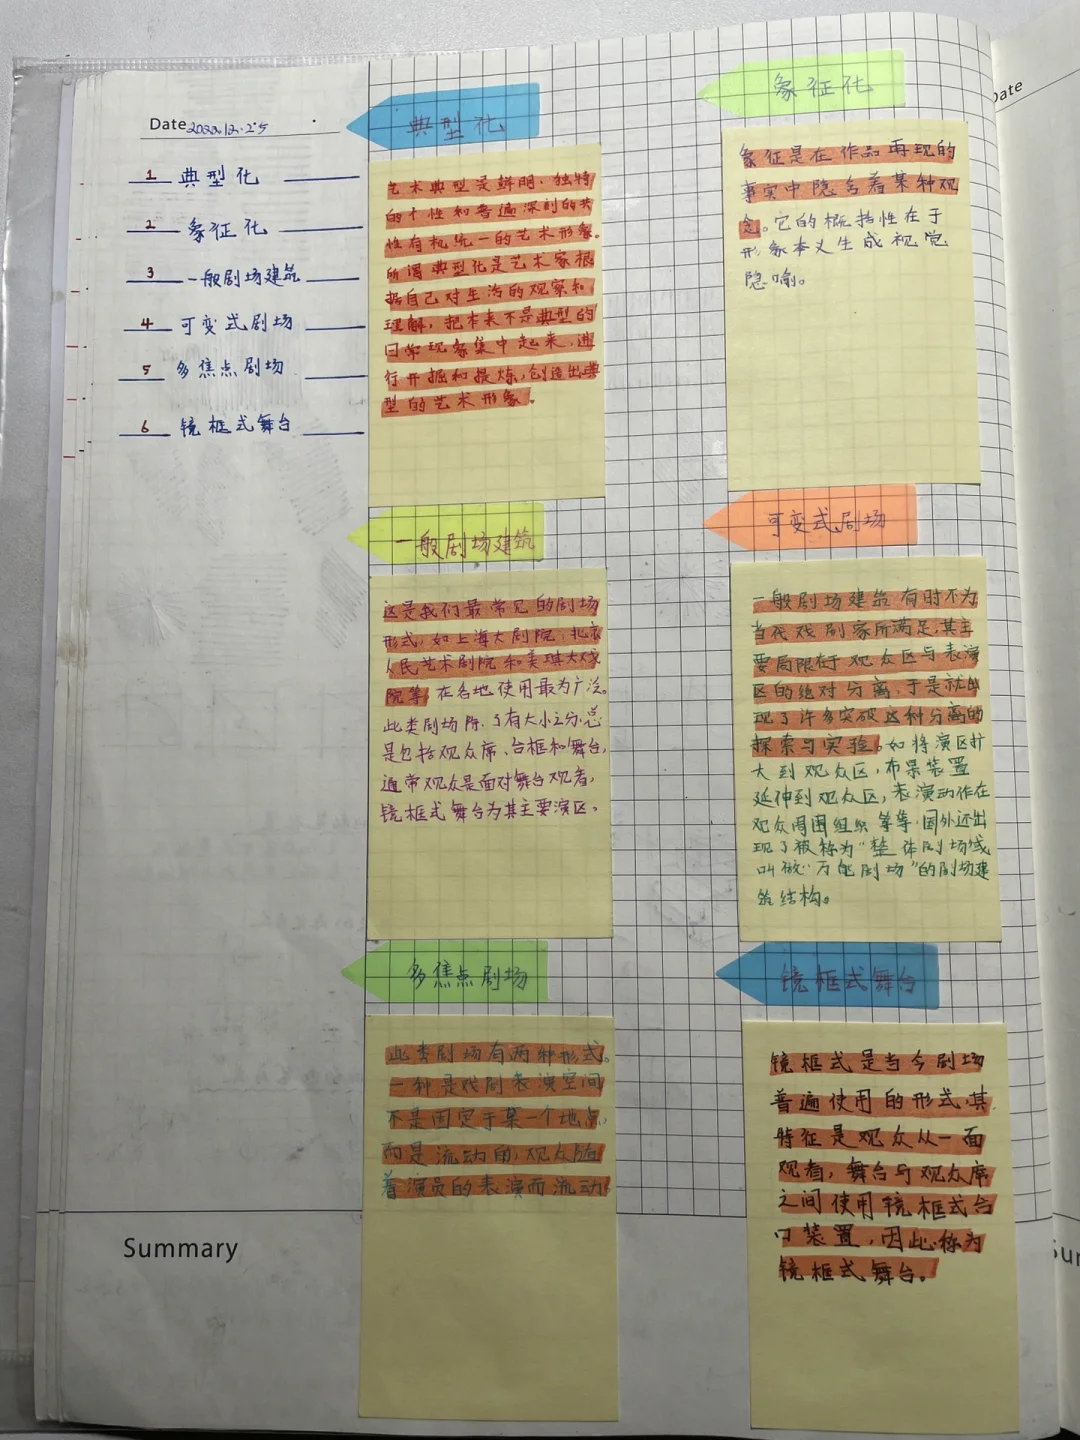 Date 2022.12.25
1 典型化
2 象征化
3 一般剧场建筑
4 可变式剧场
5 多焦点剧场
6 镜框式舞台
典型化
艺术典型是鲜明、独特
的个性和普遍深刻的共
性有机统一的艺术形象。
所谓典型化是艺术家根
据自己对生活的观察和
理解，把本来不是典型的
日常现象集中起来，进
行开掘和提炼，创造出典
型的艺术形象。
象征化
象征是在作品再现的
事实中隐含着某种观
念。它的概括性在于
形象本义生成视觉
隐喻。
一般剧场建筑
这是我们最常见的剧场
形式，如上海大剧院，北京
人民艺术剧院和美琪大戏
院等，在各地使用最为广泛。
此类剧场除了有大小之分，总
是包括观众席、台框和舞台，
通常观众是面对舞台观看，
镜框式舞台为其主要演区。
可变式剧场
一般剧场建筑有时不为
当代戏剧家所满足，其主
要局限在于观众区与表演
区的绝对分离，于是就出
现了许多突破这种分离的
探索与实验。如将演区扩
大到观众区，布景装置
延伸到观众区，表演动作在
观众周围组织等等。国外还出
现了被称为“整体剧场或
叫做“万能剧场”的剧场建
筑结构。
多焦点剧场
此类剧场有两种形式。
一种是戏剧表演空间
不是固定于某一个地点，
而是流动的，观众随
着演员的表演而流动。
镜框式舞台
镜框式是当今剧场
普遍使用的形式，其
特征是观众从一面
观看，舞台与观众席
之间使用镜框式台
口装置，因此称为
镜框式舞台。
Summary
Date